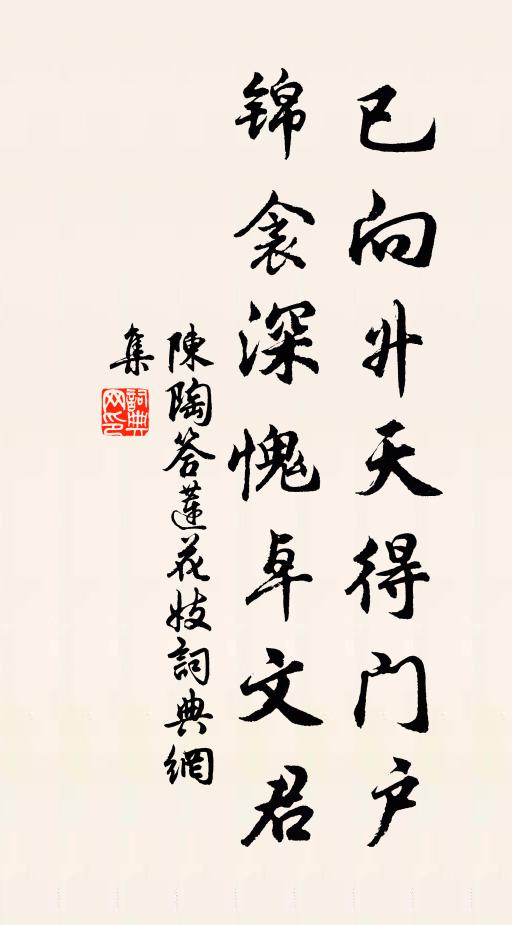 已向升天得门户
锦衾深愧卓文君
陳陶答蓮花妓詞典網
集
詞典网印